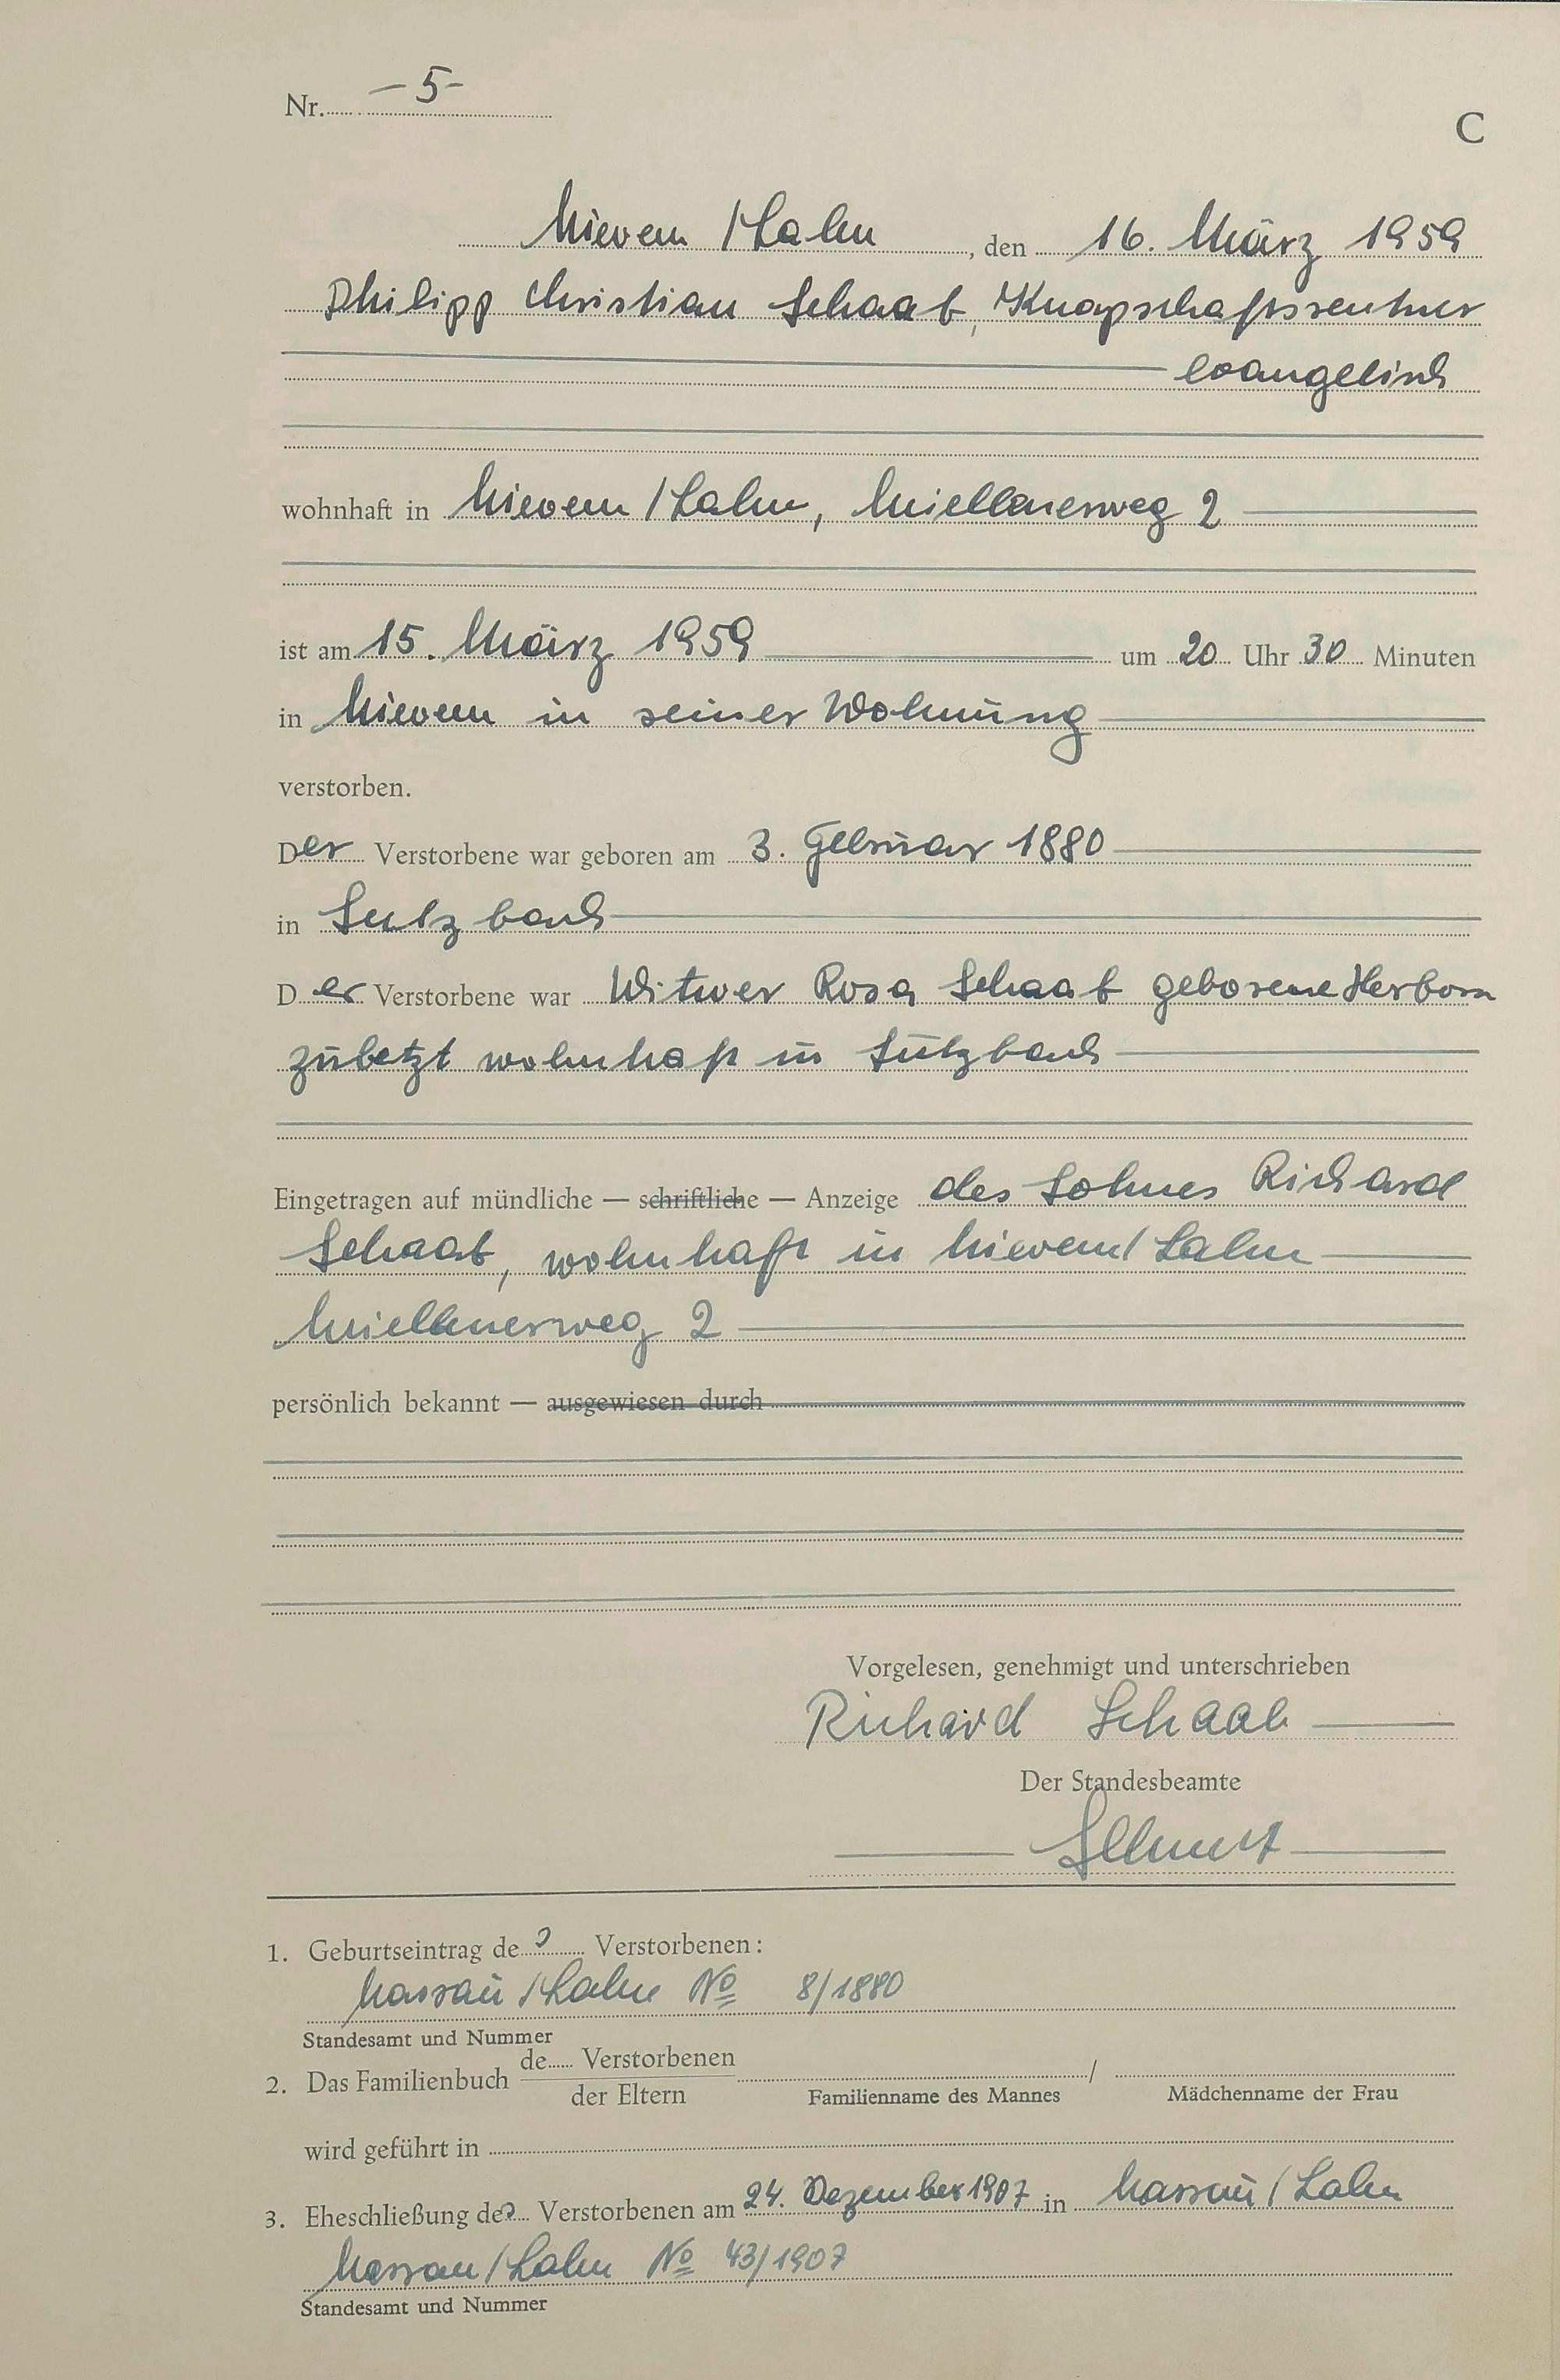 Nr. -5-
C
Nievern /Lahn, den 16. März 1959
Philipp Christian Schaab, Knapschaftsrentner
evangelisch
wohnhaft in Nievern /Lahn, Miellenerweg 2
ist am 15. März 1959 um 20 Uhr 30 Minuten
in Nievern in seiner Wohnung
verstorben.
Der Verstorbene war geboren am 3. Februar 1880
in Sulzbach
Der Verstorbene war Witwer Rosa Schaab geborene Herborn
zuletzt wohnhaft in Sulzbach
Eingetragen auf mündliche — schriftliche — Anzeige des Sohnes Richard
Schaab, wohnhaft in Nievern/Lahn
Miellenerweg 2
persönlich bekannt — ausgewiesen durch
Vorgelesen, genehmigt und unterschrieben
Richard Schaab
Der Standesbeamte
1. Geburtseintrag des Verstorbenen:
Nassau /Lahn No 8/1880
Standesamt und Nummer
2. Das Familienbuch de Verstorbenen / der Eltern /
Familienname des Mannes Mädchenname der Frau
wird geführt in
3. Eheschließung des Verstorbenen am 24. Dezember 1907 in Nassau / Lahn
Nassau/Lahn No 43/1907
Standesamt und Nummer